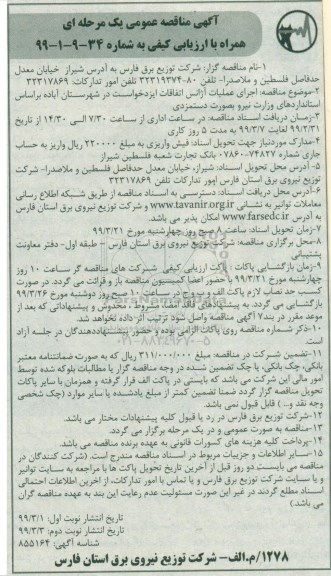 آگهی مناقصه عمومی یک مرحله ای
همراه با ارزیابی کیفی به شماره ۳۴-۹-۱-۹۹
۱-نام مناقصه گزار: شرکت توزیع برق فارس به آدرس شیراز خیابان معدل
حدفاصل فلسطین و ملاصدرا- تلفن ۸۰-۳۲۳۱۹۳۷۴ تلفن امور تدارکات: ۳۲۳۱۷۸۶۹
۲-موضوع مناقصه: اجرای عملیات آژانس اتفاقات ایزدخواست در شهرستان آباده براساس
استانداردهای وزارت نیرو بصورت دستمزدی
۳-زمان دریافت اسناد مناقصه: در ساعت اداری از ساعت ۷/۳۰ الی ۱۴/۳۰ از تاریخ
۹۹/۲/۳۱ لغایت ۹۹/۳/۷ به مدت ۵ روز کاری
۴-مدارک موردنیاز جهت تحویل اسناد: فیش واریزی به مبلغ ۲۲۰۰۰۰ ریال واریز به حساب
جاری شماره ۷۴۸۲۷-۰۷۸۶۰ بانک تجارت شعبه فلسطین شیراز
۵- آدرس محل تحویل اسناد: شیراز، خیابان معدل حدفاصل فلسطین و ملاصدرا- شرکت
توزیع نیروی برق استان فارس امور تدارکات تلفن ۳۲۳۱۷۸۶۹
۶-آدرس محل دریافت اسناد: دسترسی به اسناد مناقصه از طریق شبکه اطلاع رسانی
معاملات توانیر به نشانی www.tavanir.org.ir و شرکت توزیع نیروی برق استان فارس
به آدرس www.farsedc.ir امکان پذیر می باشد.
۷-زمان تحویل اسناد: ساعت ۸ صبح روز چهارشنبه مورخ ۹۹/۳/۲۱
۸-محل برگزاری مناقصه: شرکت توزیع نیروی برق استان فارس - طبقه اول- دفتر معاونت
پشتیبانی
۹-زمان بازگشایی پاکات : پاکت ارزیابی کیفی شرکت های مناقصه گر ساعت ۱۰ روز
چهارشنبه مورخ ۹۹/۳/۲۱ با حضور اعضا کمیسیون مناقصه باز و قرائت می گردد. در صورت
کسب حد نصاب لازم پاکت الف و ب و ج در ساعت ۱۰ صبح روز دوشنبه مورخ ۹۹/۳/۲۶
بازگشایی می گردد. به پیشنهادهای فاقد امضا، مشروط ، مخدوش و پیشنهاداتی که بعد از
موعد مقرر در بند۷ آگهی مناقصه واصل شود ترتیب اثر داده نخواهد شد.
۱۰-ذکر شماره مناقصه روی پاکات الزامی بوده و حضور پیشنهاددهندگان در جلسه آزاد
است.
۱۱-تضمین شرکت در مناقصه: مبلغ ۳۱۱/۰۰۰/۰۰۰ ریال که به صورت ضمانتنامه معتبر
بانکی، چک بانکی، یا چک تضمین شده در وجه مناقصه گزار یا مطالبات بلوکه شده توسط
امور مالی این شرکت می باشد که بایستی در پاکت الف قرار گرفته و همزمان با سایر پاکات
تحویل مناقصه گزار گردد ضمنا تضمین کمتر از مبلغ یادشده یا سایر موارد (چک شخصی
وجه نقد و...) قابل قبول نمی باشد.
۱۲-شرکت توزیع برق فارس در رد یا قبول کلیه پیشنهادات مختار می باشد.
۱۳-مناقصه به صورت عمومی و در یک مرحله برگزار می گردد.
۱۴-پرداخت کلیه هزینه های کسورات قانونی به عهده برنده مناقصه می باشد.
۱۵-سایر اطلاعات و جزییات مربوط در اسناد مناقصه مندرج است. (شرکت کنندگان در
مناقصه می بایست دو روز قبل از آخرین تاریخ تحویل پاکت ها با مراجعه به سایت توانیر
و یا سایت شرکت توزیع برق فارس و یا تماس با امور تدارکات، از آخرین اطلاعات احتمالی
اسناد مطلع گردند در غیر این صورت مسئولیت عدم رعایت این بند به عهده مناقصه گران
می باشد.)
تاریخ انتشار نوبت اول: ۹۹/۳/۱
تاریخ انتشار نوبت دوم: ۹۹/۳/۳
شناسه آگهی: ۸۵۵۱۶۴
۱۲۷۸/م.الف- شرکت توزیع نیروی برق استان فارس